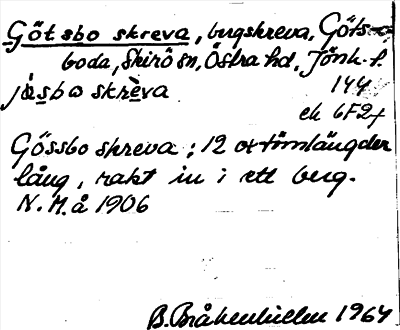 Götsbo skreva, bergskreva, Göts-
boda, Skirö sn, Östra hd, Jönk. l.
jásbo skrèva 144
ek 6F2f
Gössbo skreva; 12 oxtömlängder
lång, rakt in i ett berg.
N. M. å 1906
B. Bråkenhielm 1964